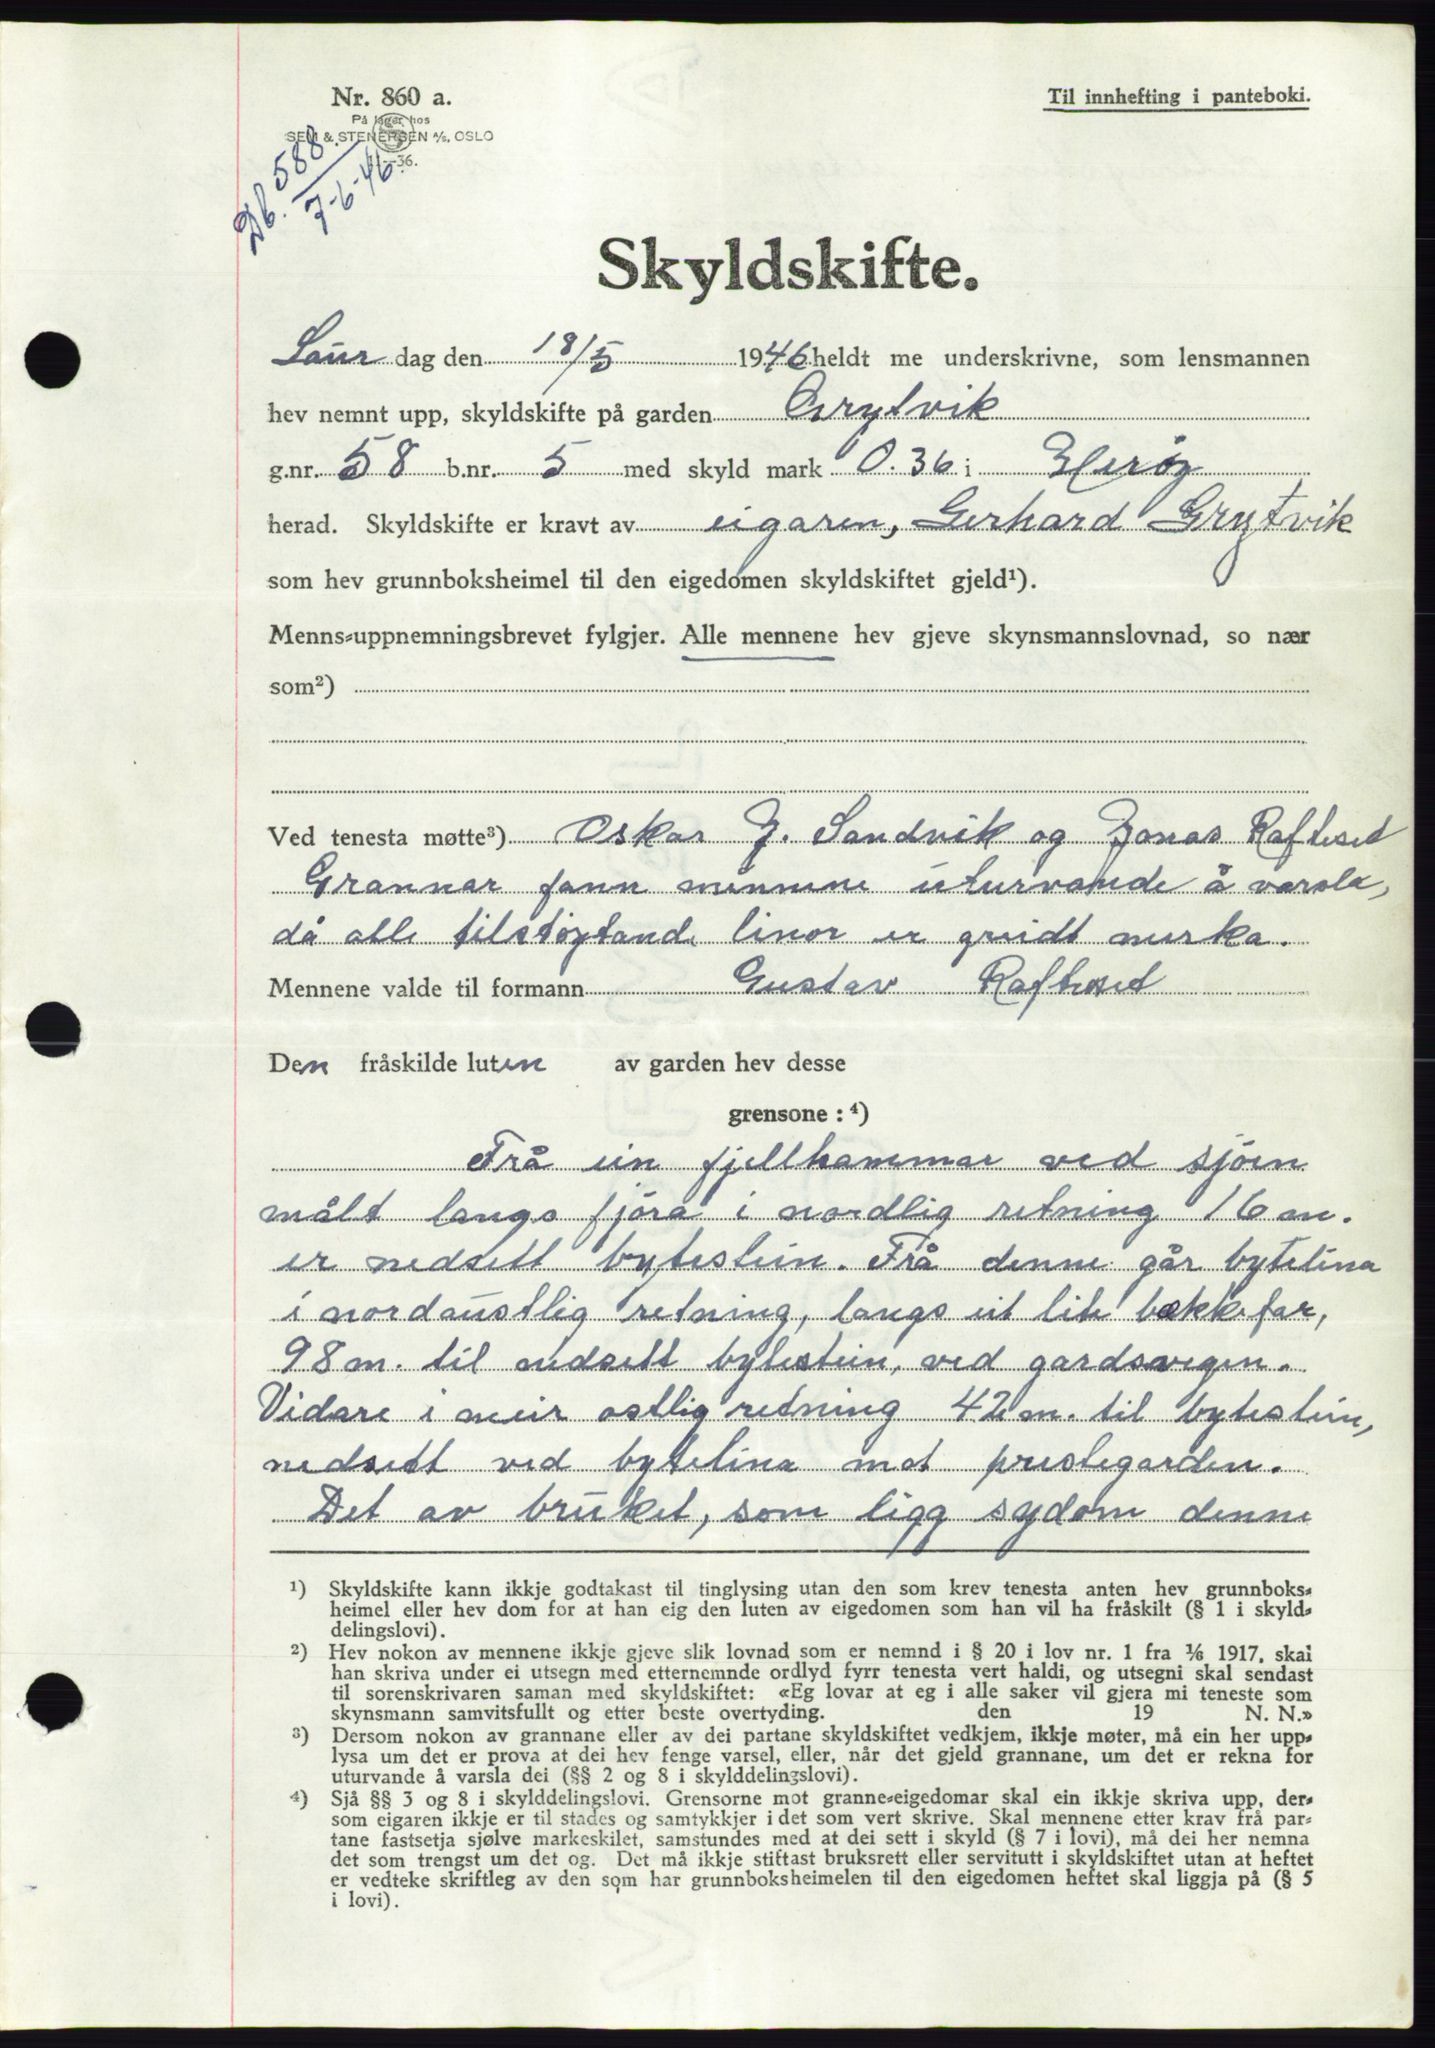 Nr. 860 a.
Til innhefting i panteboki.
På lager hos
SEM & STENERSEN A/S, OSLO
11—36.
Db. 588.
7-6-46.
Skyldskifte.
Laur dag den 18/5 1946 heldt me underskrivne, som lensmannen
hev nemnt upp, skyldskifte på garden Grytvik
g.nr. 58 b.nr. 5 med skyld mark 0.36 i Herøy
herad. Skyldskifte er kravt av eigaren, Gerhard Grytvik
som hev grunnboksheimel til den eigedomen skyldskiftet gjeld¹).
Menns-uppnemningsbrevet fylgjer. Alle mennene hev gjeve skynsmannslovnad, so nær
som²)
Ved tenesta møtte³) Oskar J. Sandvik og Jonas Rafteset
Grannar fann mennene uturvande å varsla,
då alle tilstøytande linor er greidt merka.
Mennene valde til formann Gustav Rafteset
Den fråskilde luten av garden hev desse
grensone : ⁴)
Frå ein fjellhammar ved sjöen
målt langs fjöra i nordlig retning 16 m.
er nedsett bytestein. Frå denne går bytelina
i nordaustlig retning, langs eit lite bekkefar,
98 m. til nedsett bytestein, ved gardsvegen.
Vidare i meir ostlig retning 42 m. til bytestein,
nedsett ved bytelina mot prestegarden.
Det av bruket, som ligg sydom denne
¹) Skyldskifte kann ikkje godtakast til tinglysing utan den som krev tenesta anten hev grunnboks-
heimel eller hev dom for at han eig den luten av eigedomen som han vil ha fråskilt (§ 1 i skyld-
delingslovi).
²) Hev nokon av mennene ikkje gjeve slik lovnad som er nemnd i § 20 i lov nr. 1 fra 1/6 1917, skal
han skriva under ei utsegn med etternemnde ordlyd fyrr tenesta vert haldi, og utsegni skal sendast
til sorenskrivaren saman med skyldskiftet: «Eg lovar at eg i alle saker vil gjera mi teneste som
skynsmann samvitsfullt og etter beste overtyding. den 19 N. N.»
³) Dersom nokon av grannane eller av dei partane skyldskiftet vedkjem, ikkje møter, må ein her upp-
lysa um det er prova at dei hev fenge varsel, eller, når det gjeld grannane, um det er rekna for
uturvande å varsla dei (§§ 2 og 8 i skylddelingslovi).
⁴) Sjå §§ 3 og 8 i skylddelingslovi. Grensorne mot granne-eigedomar skal ein ikkje skriva upp, der-
som eigaren ikkje er til stades og samtykkjer i det som vert skrive. Skal mennene etter krav frå par-
tane fastsetja sjølve markeskilet, samstundes med at dei sett i skyld (§ 7 i lovi), må dei her nemna
det som trengst um det og. Det må ikkje stiftast bruksrett eller servitutt i skyldskiftet utan at heftet
er vedteke skriftleg av den som har grunnboksheimelen til den eigedomen heftet skal liggja på (§ 5
i lovi).